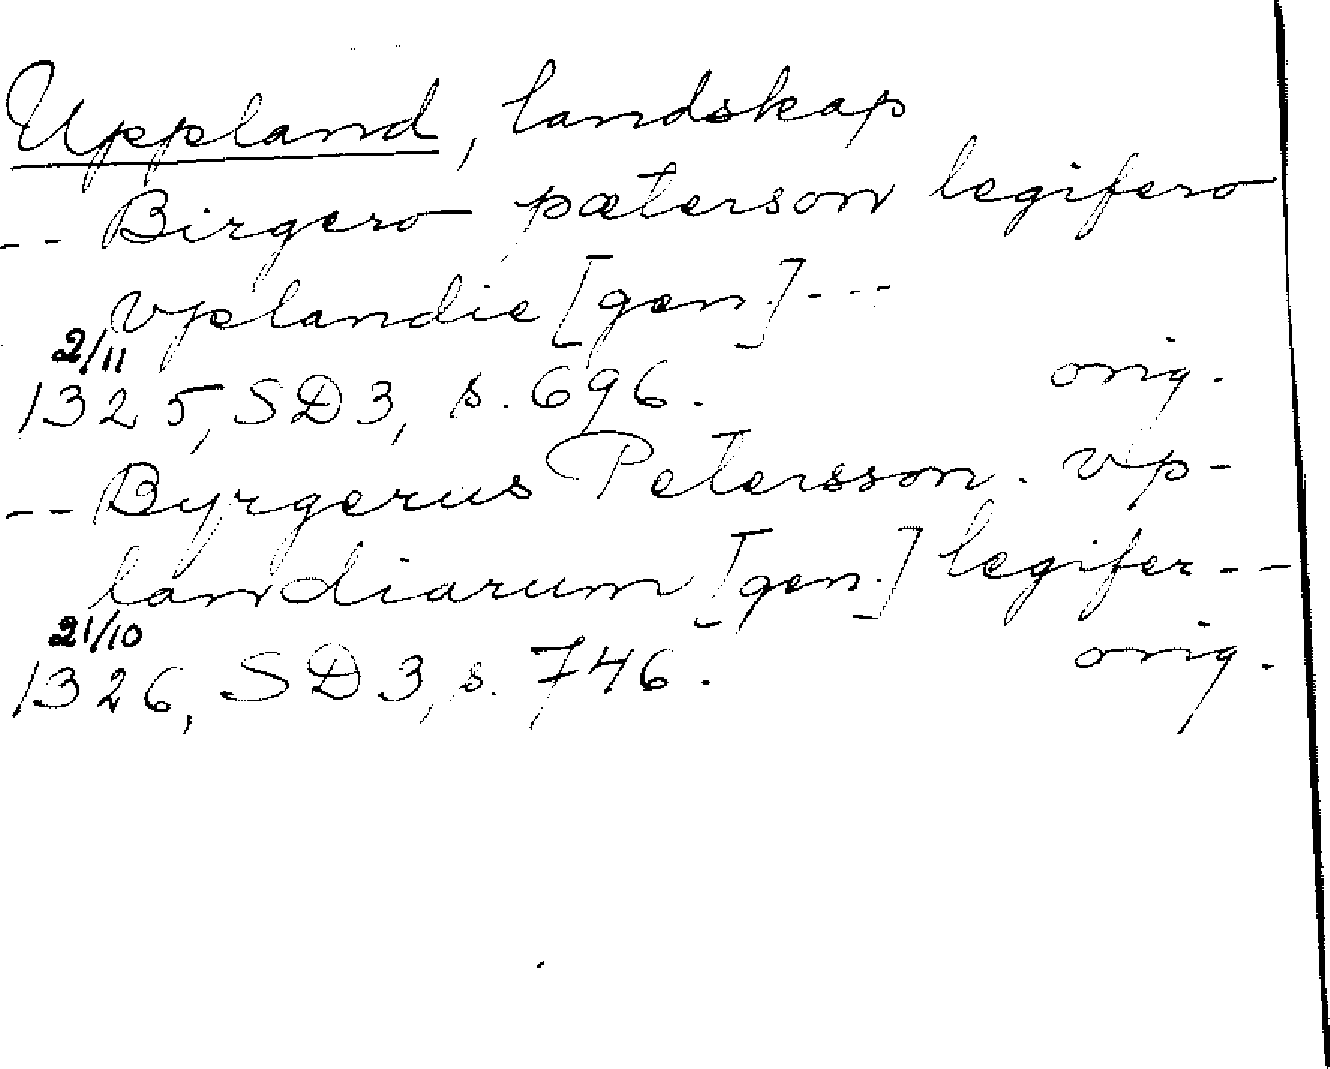 Uppland, landskap
-- Birgero pæterson legifero
Vplandie [gen.] ---
2/11
1325, SD3, s. 696. orig.
-- Byrgerus Petersson. vp-
landiarum [gen.] legifer --
21/10
1326, SD3, s. 746. orig.